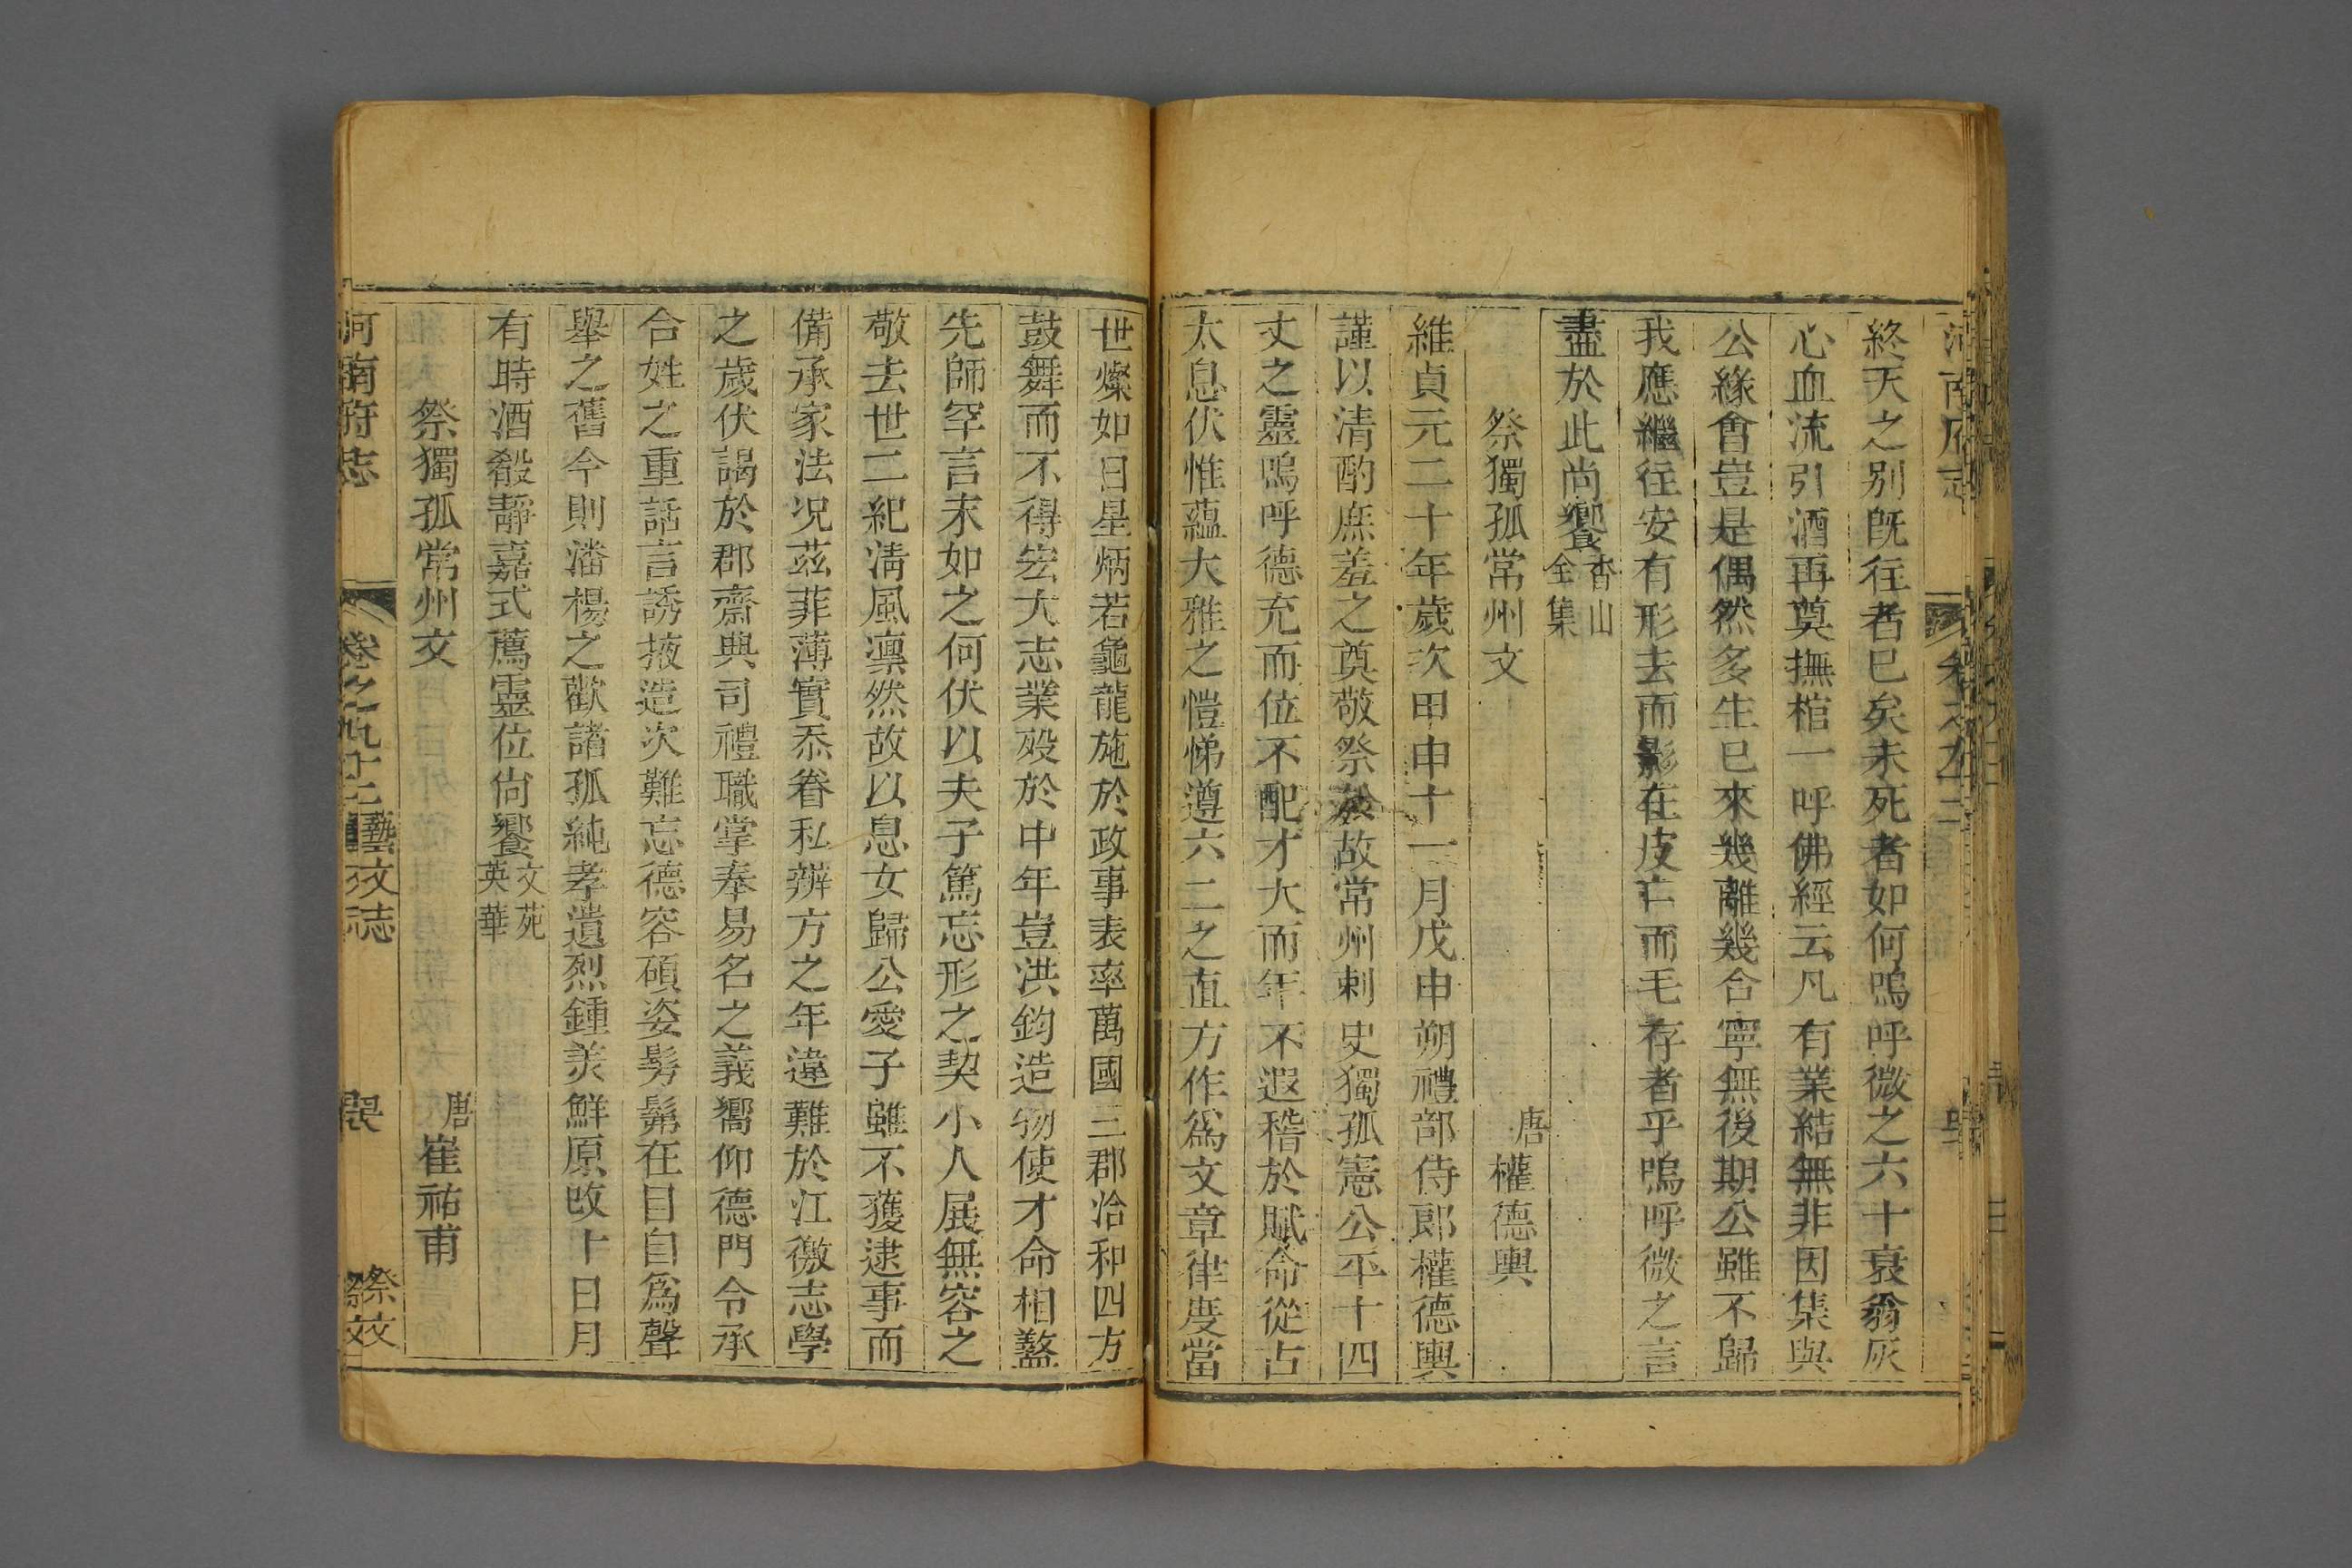 終天之别既往者巳矣未死者如何嗚呼微之六十衰翁灰
心血流引酒再奠撫棺一呼佛經云凡有業結無非因集與
公緣會豈是偶然多生巳來幾離幾合寧無後期公雖不歸
我應繼往安有形去而影在皮亡而毛存者乎嗚呼微之言
盡於此尚饗香山全集
祭獨孤常州文
唐權德輿
維貞元二十年歲次甲申十一月戊申朔禮部侍郎權德輿
謹以清酌庶羞之奠敬祭於故常州刺史獨孤憲公平十四
丈之靈嗚呼德充而位不配才大而年不遐稽於賦命從古
太息伏惟蘊大雅之愷悌遵六二之直方作爲文章律度當
世燦如日星炳若龜龍施於政事表率萬國三郡洽和四方
鼓舞而不得宏大志業歿於中年豈洪鈞造物使才命相盭
先師罕言末如之何伏以夫子篤忘形之契小人展無容之
敬去世二紀清風凛然故以息女歸公愛子雖不獲逮事而
備承家法况茲菲薄實忝眷私辦方之年違難於江徼志學
之歲伏謁於郡齋典司禮職掌奉易名之義嚮仰德門令承
合姓之重話言誘掖造次難忘德容碩姿髣髴在目自爲聲
舉之舊今則潘楊之歡諸孤純孝遺烈鍾羨鮮原改卜日月
有時酒殽靜嘉式薦靈位尙饗文苑英華
祭獨孤常州文
唐崔祐甫
河南府志
卷之九十二藝文志
祭文